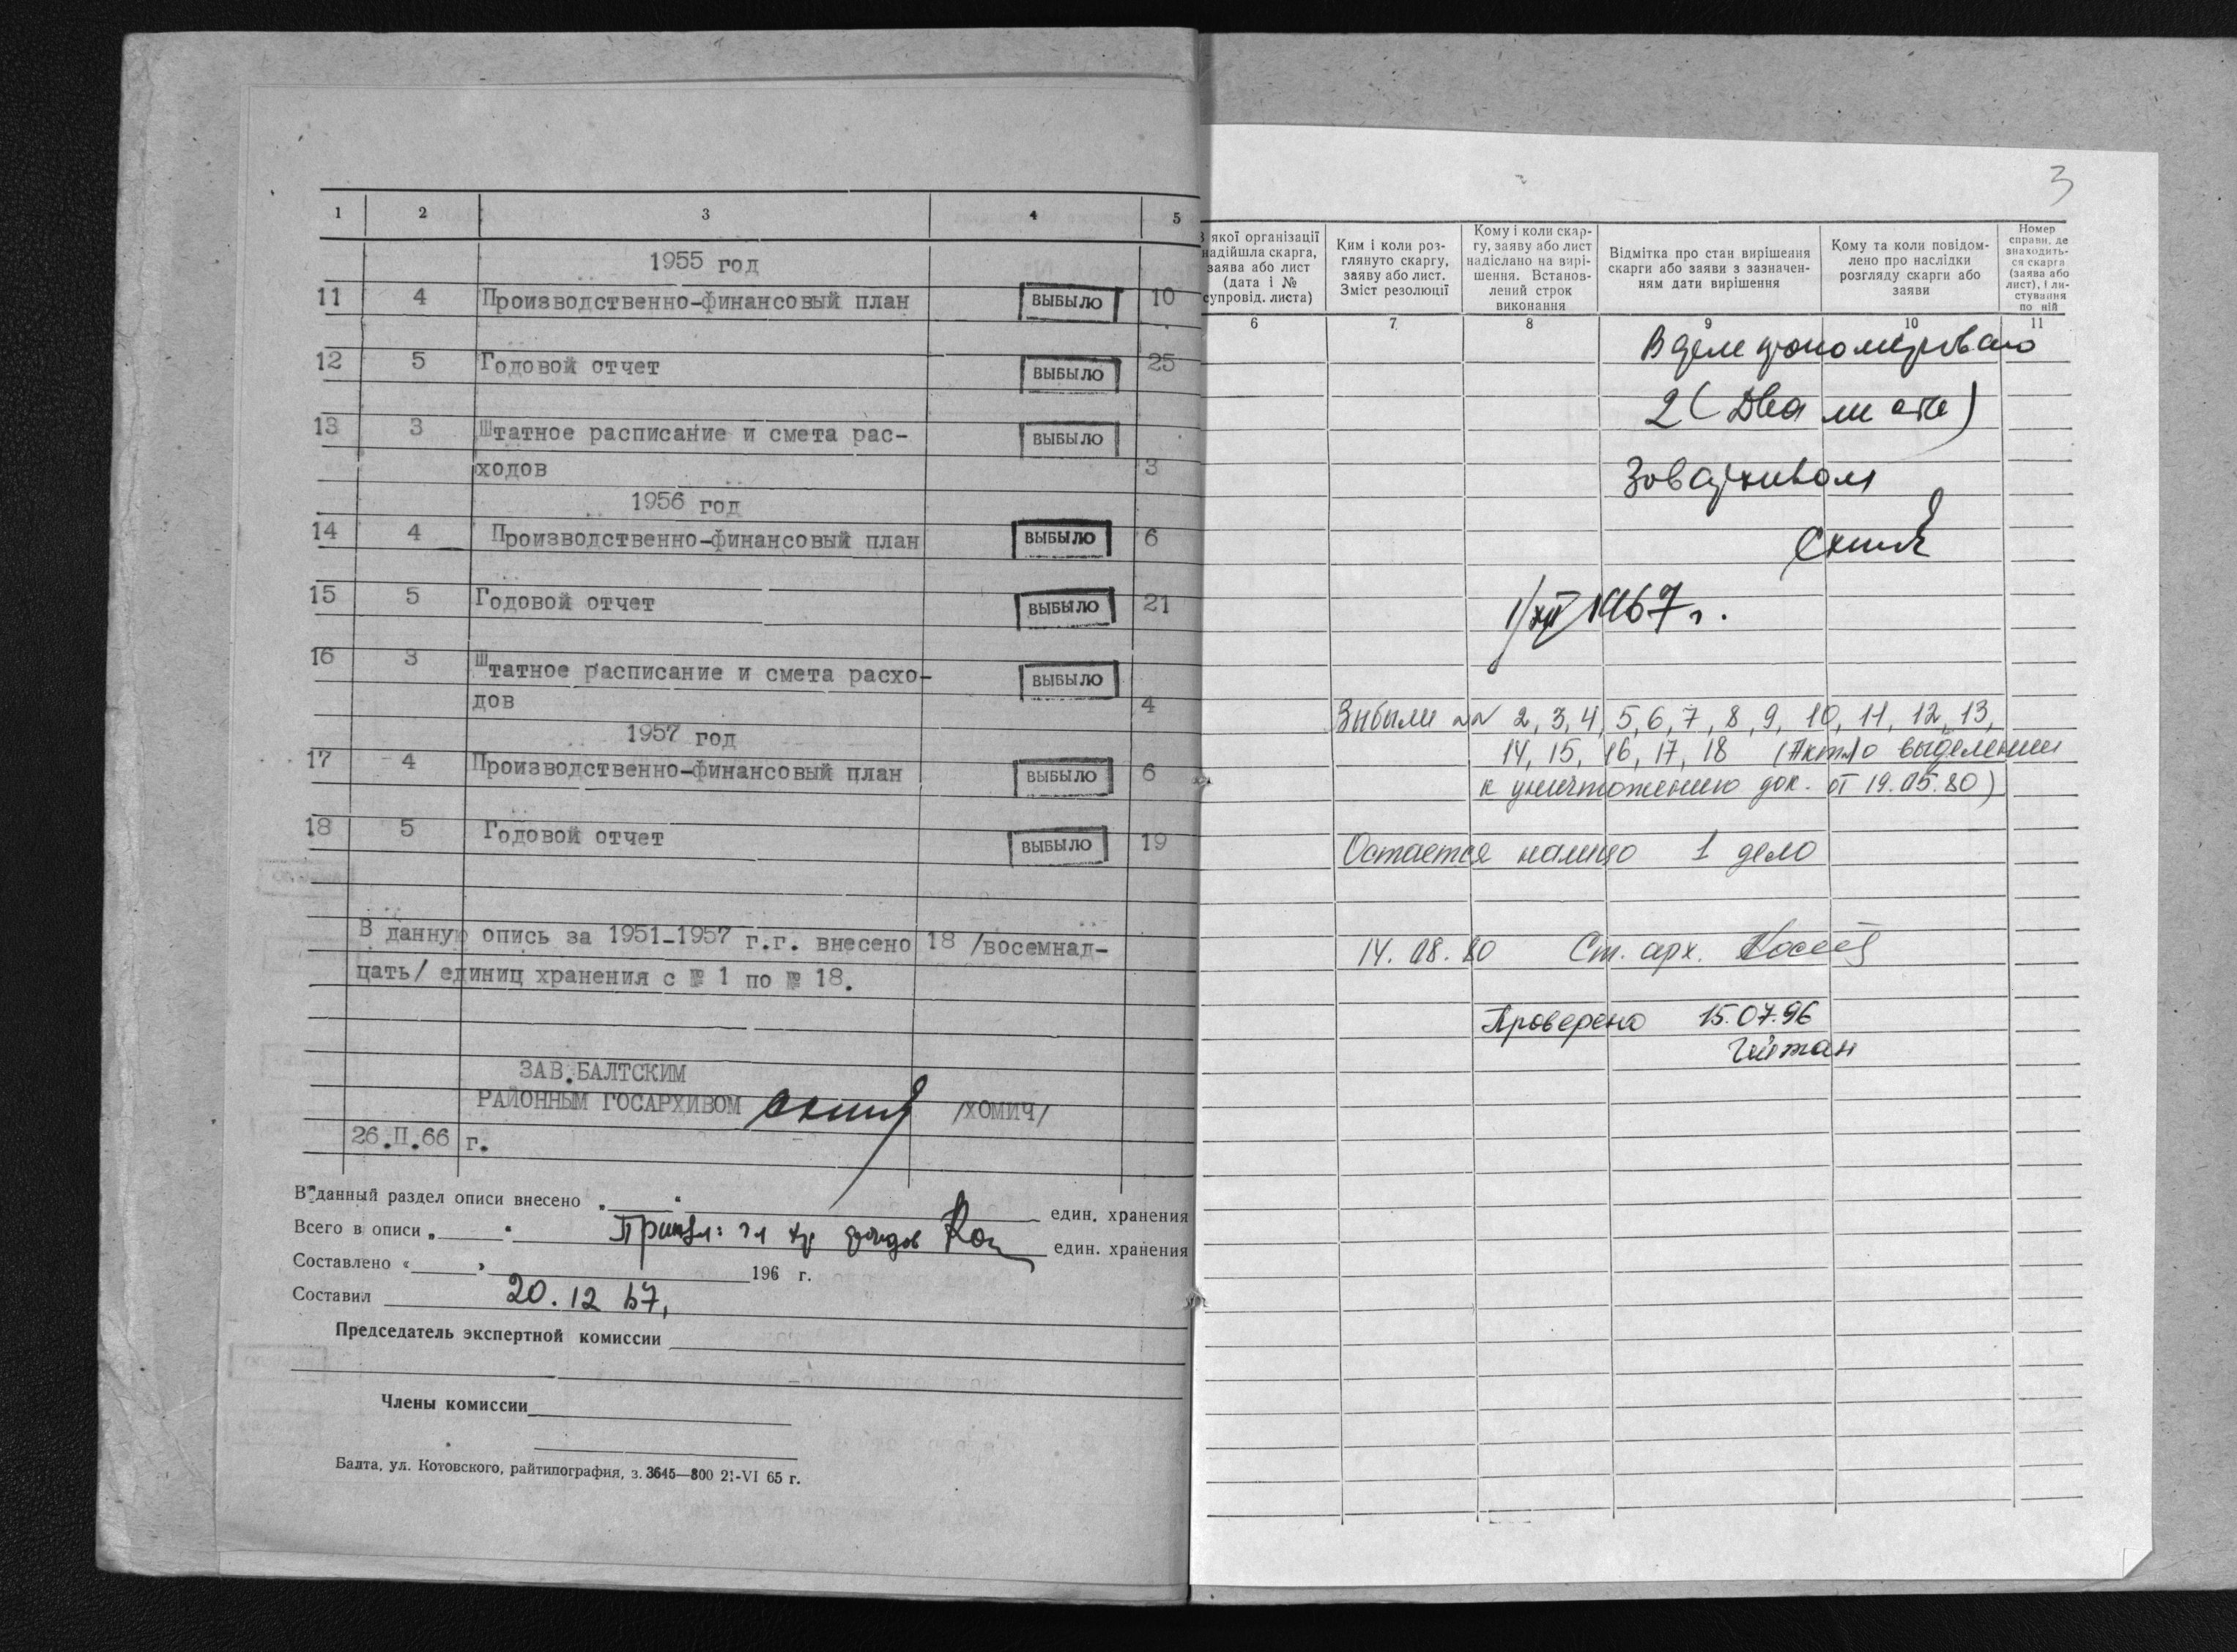 1 2 3 4 5
1955 год
11 4 Производственно-финансовый план ВЫБЫЛО 10
12 5 Годовой отчет ВЫБЫЛО 25
13 3 Штатное расписание и смета рас- ВЫБЫЛО
ходов 3
1956 год
14 4 Производственно-финансовый план ВЫБЫЛО 6
15 5 Годовой отчет ВЫБЫЛО 21
16 3 Штатное расписание и смета расхо- ВЫБЫЛО
дов 4
1957 год
17 4 Производственно-финансовый план ВЫБЫЛО 6
18 5 Годовой отчет ВЫБЫЛО 19
В данную опись за 1951-1957 г.г. внесено 18 /восемнад-
цать/ единиц хранения с № 1 по № 18.
ЗАВ.БАЛТСКИМ
РАЙОННЫМ ГОСАРХИВОМ /ХОМИЧ/
26.II.66 г.
В данный раздел описи внесено „ “ един. хранения
Всего в описи „ “ един. хранения
Составлено « » 196 г.
Составил 20.12 67,
Председатель экспертной комиссии
Члены комиссии
Балта, ул. Котовского, райтипография, з. 3645—800 21-VI 65 г.
3
якої організації
надійшла скарга,
заява або лист
(дата і №
супровід. листа)
Ким і коли роз-
глянуто скаргу,
заяву або лист.
Зміст резолюції
Кому і коли скар-
гу, заяву або лист
надіслано на вирі-
шення. Встанов-
лений строк
виконання
Відмітка про стан вирішення
скарги або заяви з зазначен-
ням дати вирішення
Кому та коли повідом-
лено про наслідки
розгляду скарги або
заяви
Номер
справи, де
знаходить-
ся скарга
(заява або
лист), і ли-
стування
по ній
6 7 8 9 10 11
В деле пронумеровано
2 (Два листа)
Зав архивом
1/XII 1967 г.
Выбыли №№ 2, 3, 4, 5, 6, 7, 8, 9, 10, 11, 12, 13,
14, 15, 16, 17, 18 (Акт о выделении
к уничтожению док. от 19.05.80)
Остается налицо 1 дело
14.08.80 Ст. арх.
Проверено 15.07.96